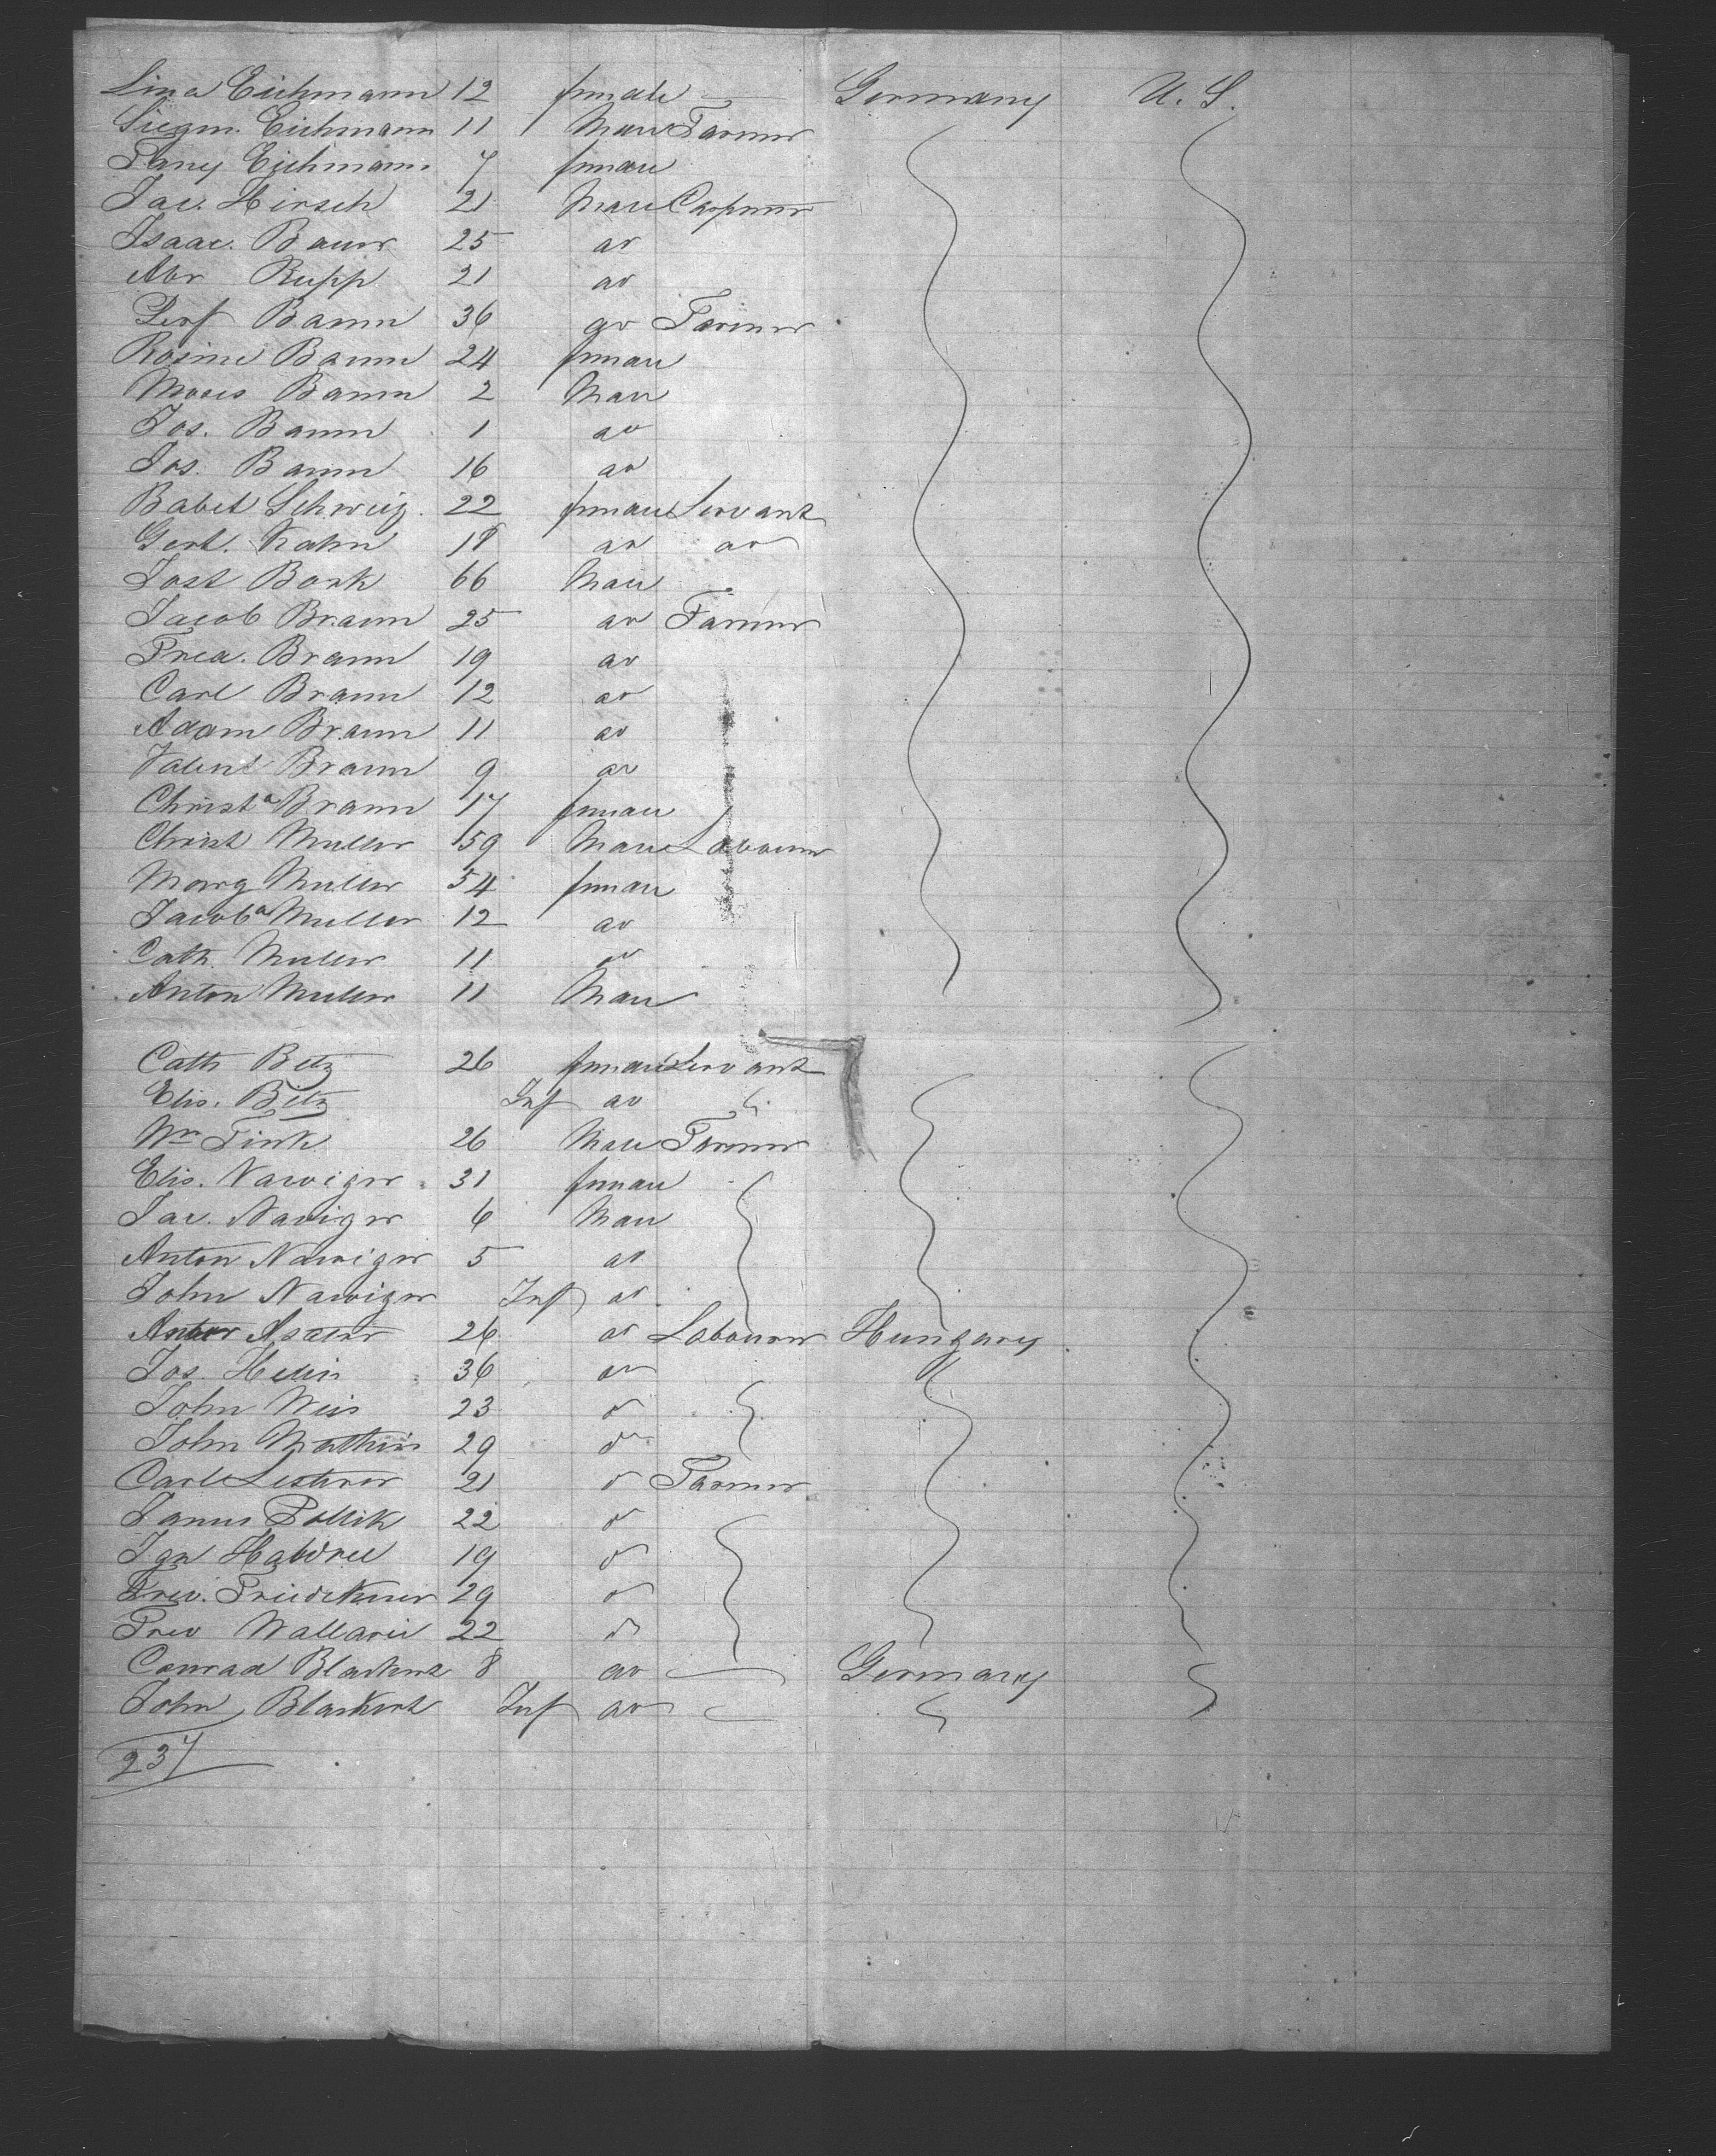 Lina Eichmann 12 female Germany U. S.
Siegm. Eichmann 11 Male Farmer
Fany Eichmann 7 female
Jac. Hirsch 21 Male
Isaac. Bauer 25 do
Abr Rupp 21 do
36 do Farmer
24 female
Moses Baum 2 Male
Jos. Baum 1 do
Jos. Baum 16 do
Babet Schweiz. 22 female Servant
Gert. Kahn 18 do do
Jost Bork 66 Male
Jacob Braun 25 do Farmer
Fred. Braun 19 do
Carl Braun 12 do
Adam Braun 11 do
Valent Braun 9 do
Christa Braun 17 female
Christ Muller 59 Male Labourer
Marg Muller 54 female
Jacoba Muller 12 do
Cath. Muller 11 do
Anton Muller 11 Male
Cath Betz 26 female Servant
Elis. Betz Inf do
Wm Fink 26 Male Farmer
Elis. Naviger 31 female
Jac. Naviger 6 Male
Anton Naviger 5 do
John Naviger Inf do
26 do Labourer Hungary
Jos. 36 do
John Weis 23 do
John 29 do
Carl 21 do Farmer
Pollik 22 do
19 do
29 do
22 do
Conrad Blankert 8 do Germany
John Blankert Inf do
237